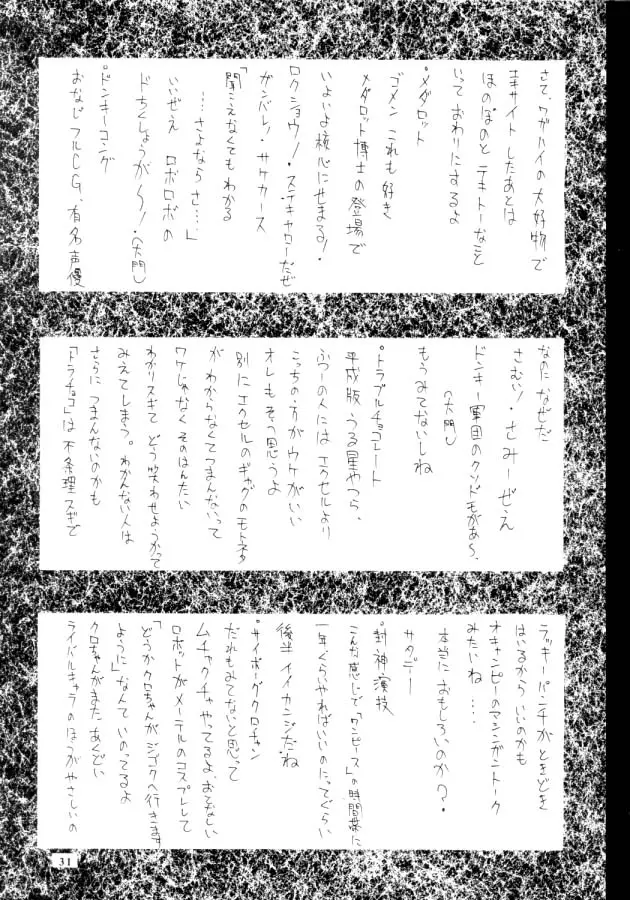 さて、ワガハイの大好物で
エキサイトしたあとは
ほのぼのとテキトーなこと
いっておわりにするよ
°メダロット
ゴメン これも好き
メダロット博士の登場で
いよいよ核心にせまる!
ロクショウ!ステキャローだぜ
ガンバレ!サケカース
「聞こえなくてもわかる
…さよならさ…」
いいぜえ ロボロボの
ドちくしょうが〜!(大門)
°ドンキーコング
おなじフルCG、有名声優
なのになぜだ
さむい!さみーぜえ
ドンキー軍団のクソドモがあ〜、
(大門)
もうみてないしね
°トラブルチョコレート
平成版うる星やつら、
ふつーの人にはエクセルより
こっちの方がウケがいい
オレもそう思うよ
別にエクセルのギャグのモトネタ
がわからなくてつまんないって
ワケじゃなくそのはんたい
わかりスギてどう笑わせようかって
みえてしまう。わかんない人は
さらにつまんないのかも
「トラチョコ」は不条理スギで
ラッキーパンチがときどき
はいるからいいのかも
オキャンピーのマシンガントーク
みたいね……
本当におもしろいのか?・
サタデー
°封神演技
こんな感じで「ワンピース」の時間帯に
一年ぐらいやればいいのにってぐらい
後半イイカンジだね
°サイボーグクロチャン
だれもみてないと思って
ムチャクチャやってるよ、おぞましい
ロボットがメーテルのコスプレして
「どうかクロちゃんがジゴクへ行きます
ように」なんていのってるよ
クロちゃんがまたあくどい
ライバルキャラのほうがやさしいの
31